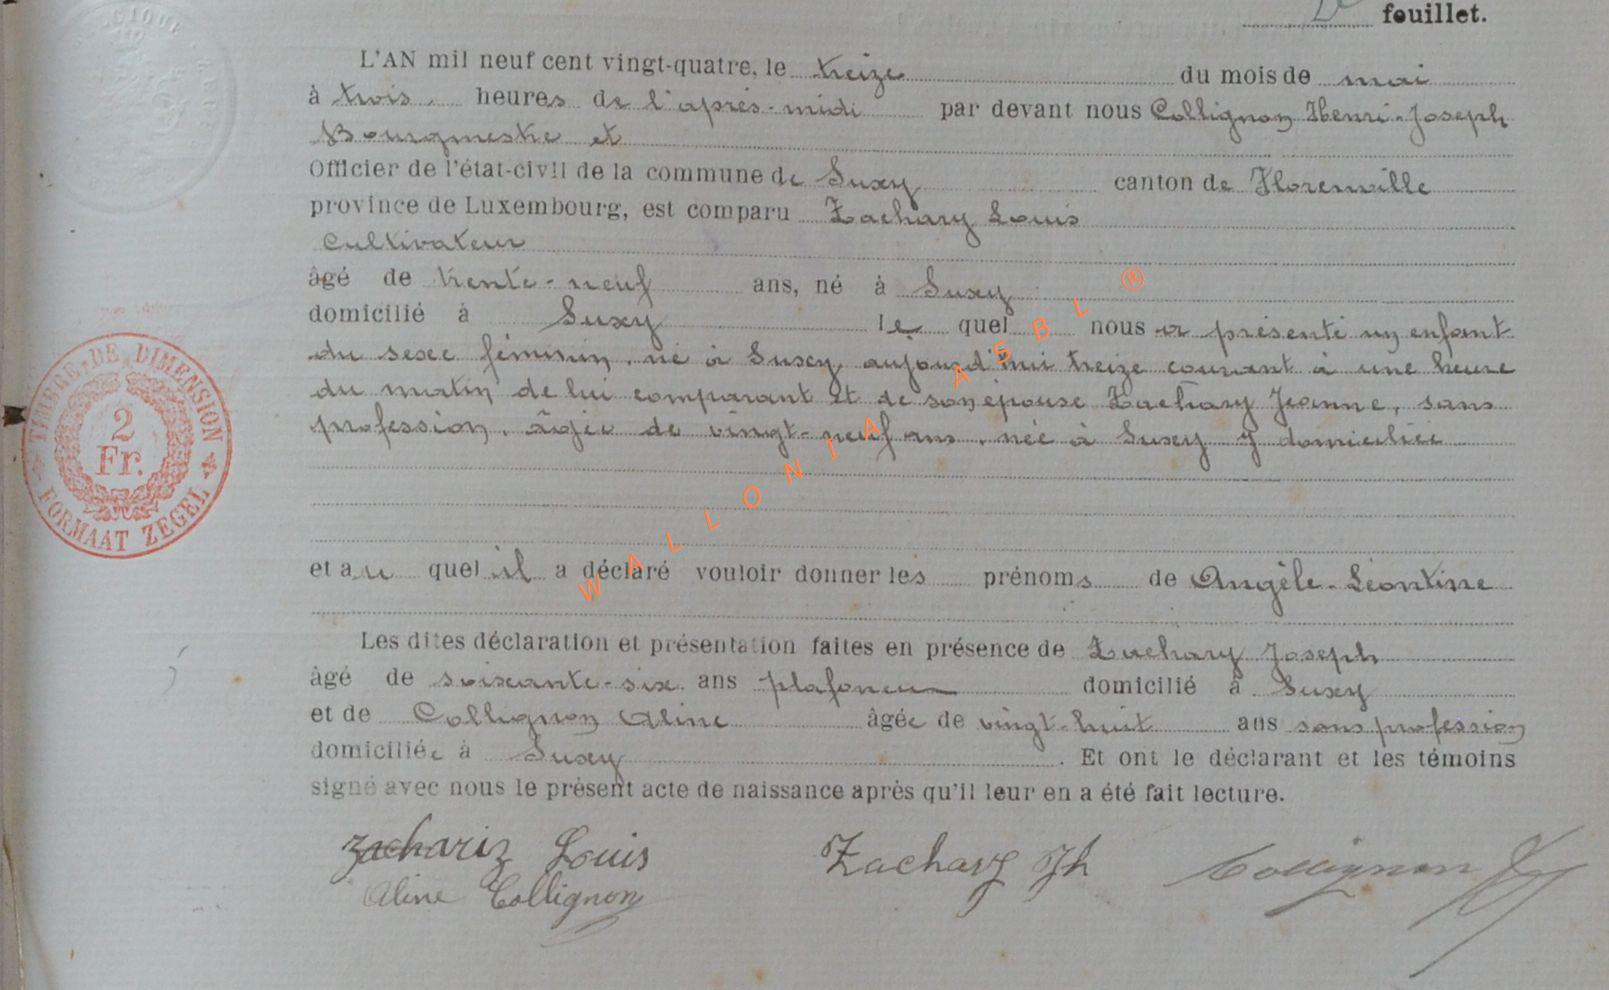 feuillet.
L'AN mil neuf cent vingt-quatre, le treize du mois de mai
à trois heures de l'après-midi par devant nous Collignon Henri-Joseph
Bourgmestre et
Officier de l'état-civil de la commune de Suxy canton de Florenville
province de Luxembourg, est comparu Zachary Louis
Cultivateur
âgé de trente-neuf ans, né à Suxy
domicilié à Suxy le quel nous a présenté un enfant
du sexe féminin, né à Suxy aujourd'hui treize courant à une heure
du matin de lui comparant et de son épouse Zachary Jeanne, sans
profession, âgée de vingt-neuf ans, née à Suxy y domiciliée
et au quel il a déclaré vouloir donner les prénoms de Angèle-Léontine
Les dites déclaration et présentation faites en présence de Zachary Joseph
âgé de soixante-six ans plafoneur domicilié à Suxy
et de Collignon Aline âgée de vingt-huit ans sans profession
domiciliée à Suxy. Et ont le déclarant et les témoins
signé avec nous le présent acte de naissance après qu'il leur en a été fait lecture.
Zachariz Louis Zachary Jh Collignon
Aline Collignon
TIMBRE DE DIMENSION
2
Fr.
FORMAAT ZEGEL
WALLONIA ASBL ®